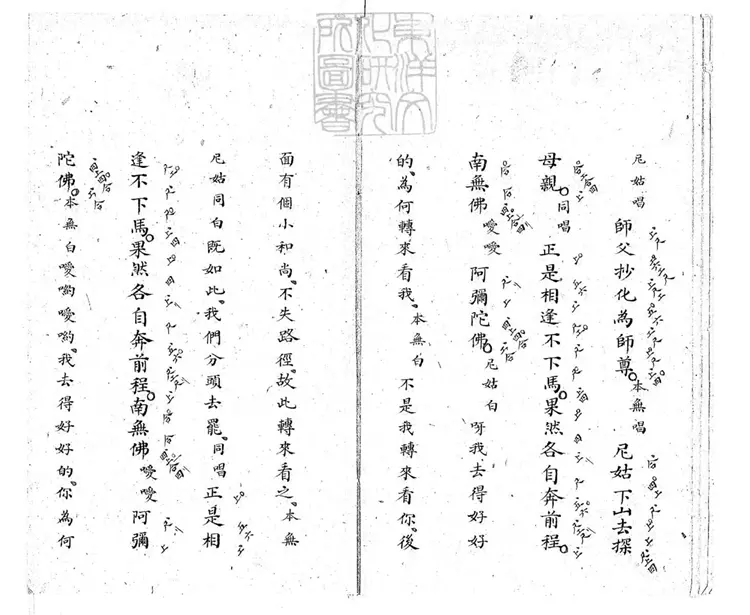 尼姑唱 師父抄化為師尊。本無唱 尼姑下山去探
母親。同唱 正是相逢不下馬。果然各自奔前程。
南無佛 噯噯 阿彌陀佛。尼姑白 呀我去得好好
的、為何轉來看我、本無白 不是我轉來看你、後
面有個小和尚、不失路徑、故此轉來看之、本無
尼姑同白既如此、我們分頭去罷、同唱 正是相
逢不下馬。果然各自奔前程。南無佛 噯噯 阿彌
陀佛。本無白 噯喲噯喲、我去得好好的、你為何
東洋文化研究所圖書